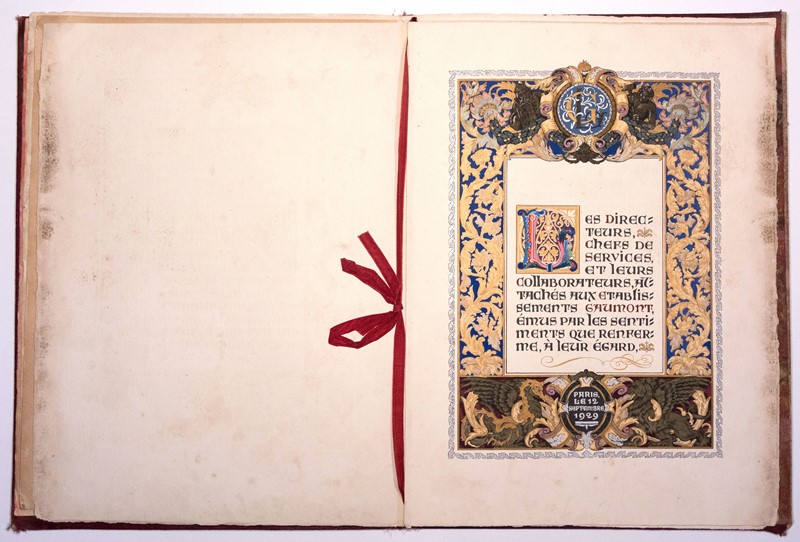 LES DIREC=
TEURS,
CHEFS DE
SERVICES,
ET LEURS
COLLABORATEURS, AT=
TACHÉS AUX ETABLIS=
SEMENTS GAUMONT,
ÉMUS PAR LES SENTI=
MENTS QUE RENFER=
ME, À LEUR ÉGARD,
PARIS,
LE 12
SEPTEMBRE
1929